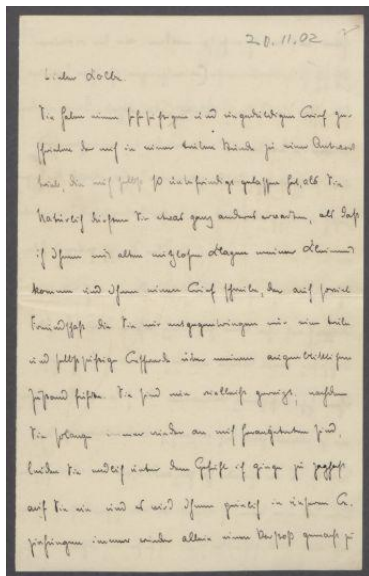 20.11.02
Lieber Kolbe
Sie haben einen sehr und ungeduldigen Brief ge-
schrieben der mich in einer trüben Stunde zu einer Antwort
trieb, die mich selbst so unbefriedigt gelassen hat, als Sie
Natürlich durften Sie etwas ganz anderes erwarten, als daß
ich Ihnen mit alten nutzlosen Klagen meiner Kleinmut
komme und Ihnen einen Brief schreibe, der auf soviel
Freundschaft die Sie mir entgegenbringen nur eine
und selbstsüchtige über meinen augenblicklichen
Zustand Sie sind nun vielleicht gereizt, nachdem
Sie solange immer wieder an mich herangetreten sind,
leiden Sie endlich unter dem Gefühl ich ginge zu zaghaft
auf Sie ein und es wird Ihnen peinlich in unseren Be-
ziehungen immer wieder allein einen Vorstoß gemacht zu